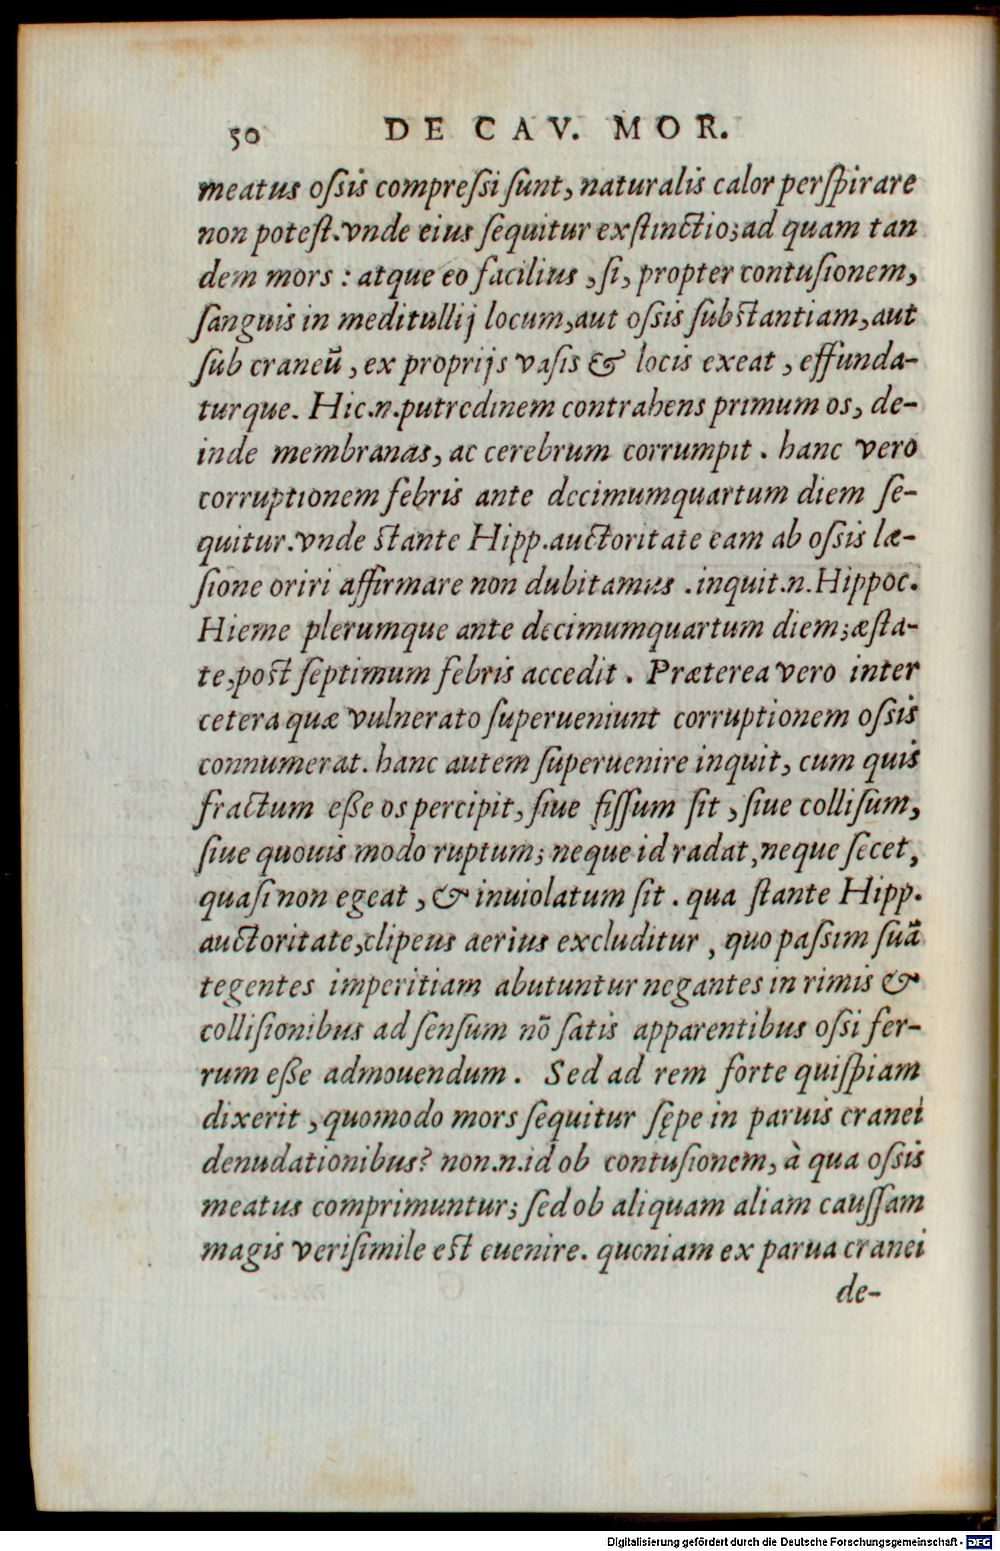 50 DE CAV. MOR.
meatus oſsis compreſsi ſunt, naturalis calor perſpirare
non poteſt. vnde eius ſequitur exſtinctio; ad quam tan
dem mors: atque eo facilius, ſi, propter contuſionem,
ſanguis in meditullij locum, aut oſsis ſubſtantiam, aut
ſub craneũ, ex proprijs vaſis & locis exeat, effunda-
turque. Hic.n.putredinem contrahens primum os, de-
inde membranas, ac cerebrum corrumpit. hanc vero
corruptionem febris ante decimumquartum diem ſe-
quitur. vnde ſtante Hipp. auctoritate eam ab oſsis læ-
ſione oriri affirmare non dubitamus. inquit.n. Hippoc.
Hieme plerumque ante decimumquartum diem; æſta-
te, poſt ſeptimum febris accedit. Præterea vero inter
cetera quæ vulnerato ſuperueniunt corruptionem oſsis
connumerat. hanc autem ſuperuenire inquit, cum quis
fractum eße os percipit, ſiue fiſſum ſit, ſiue colliſum,
ſiue quouis modo ruptum; neque id radat, neque ſecet,
quaſi non egeat, & inuiolatum ſit. qua ſtante Hipp.
auctoritate, clipeus aerius excluditur, quo paſsim ſuã
tegentes imperitiam abutuntur negantes in rimis &
colliſionibus ad ſenſum nõ ſatis apparentibus oſsi fer-
rum eße admouendum. Sed ad rem forte quiſpiam
dixerit, quomodo mors ſequitur ſępe in paruis cranei
denudationibus? non.n.id ob contuſionem, à qua oſsis
meatus comprimuntur; ſed ob aliquam aliam cauſſam
magis veriſimile eſt euenire. quoniam ex parua cranei
de-
Digitalisierung gefördert durch die Deutsche Forschungsgemeinschaft - DFG